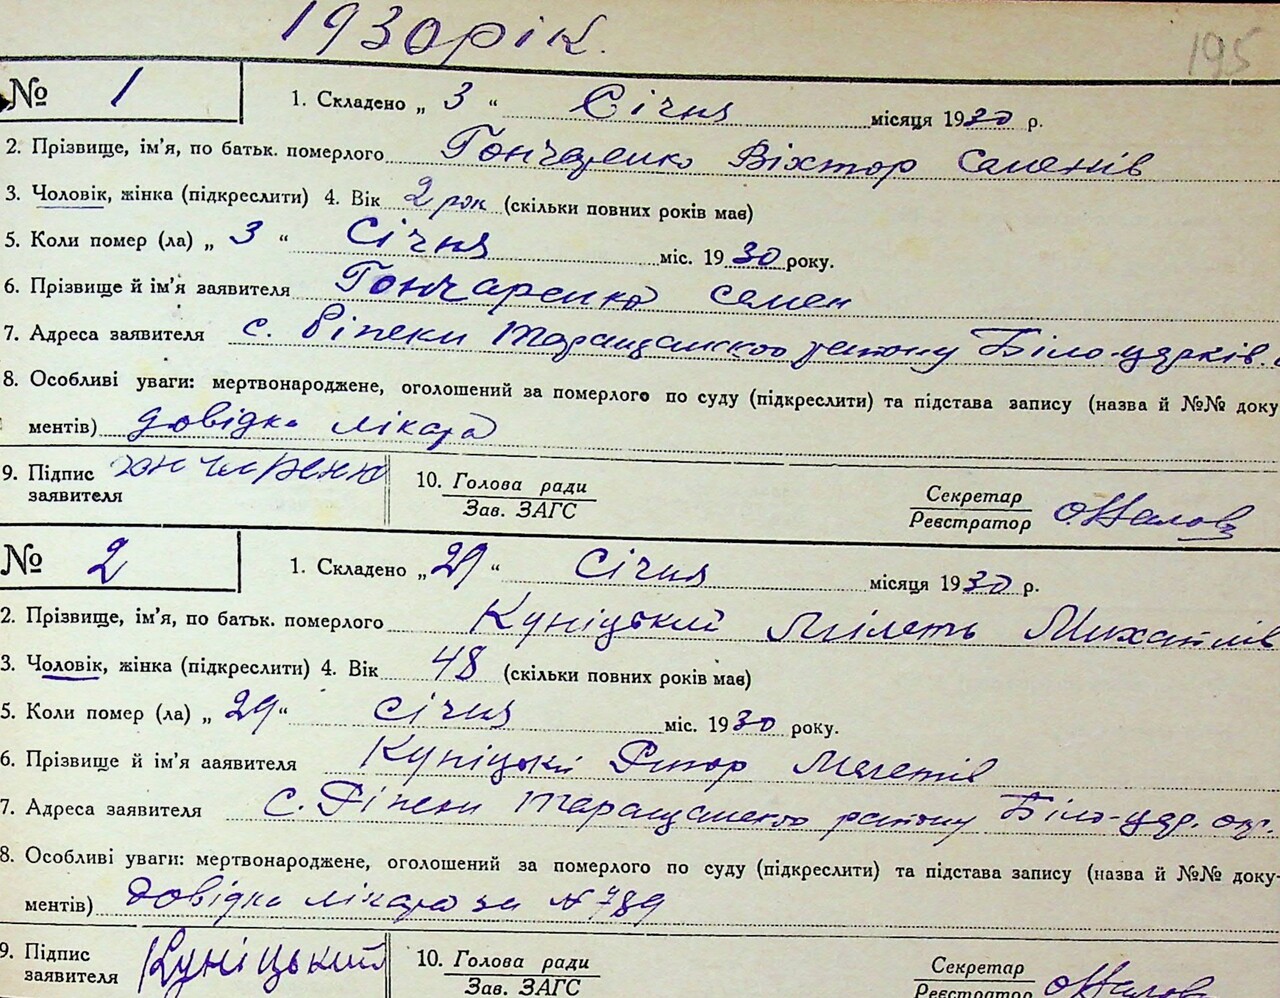 1930 рік.
195
№ 1
1. Складено „ 3 “ Січня місяця 1930 р.
2. Прізвище, ім'я, по батьк. померлого Гончаренко Віктор Семенів
3. Чоловік, жінка (підкреслити) 4. Вік 2 рок (скільки повних років має)
5. Коли помер (ла) „ 3 “ Січня міс. 1930 року.
6. Прізвище й ім'я заявителя Гончаренко Семен
7. Адреса заявителя с. Ріпеки Таращанского району Біло-церків.
8. Особливі уваги: мертвонароджене, оголошений за померлого по суду (підкреслити) та підстава запису (назва й №№ доку-
ментів) довідка лікара
9. Підпис
заявителя
10. Голова ради
Зав. ЗАГС
Секретар
Реєстратор
№ 2
1. Складено „ 29 “ Січня місяця 1930 р.
2. Прізвище, ім'я, по батьк. померлого Куніцький Мілеть Михайлів
3. Чоловік, жінка (підкреслити) 4. Вік 48 (скільки повних років має)
5. Коли помер (ла) „ 29 “ Січня міс. 1930 року.
6. Прізвище й ім'я заявителя Куніцький
7. Адреса заявителя с. Ріпеки Таращанского району Біло-цер. окр.
8. Особливі уваги: мертвонароджене, оголошений за померлого по суду (підкреслити) та підстава запису (назва й №№ доку-
ментів) довідка лікара за № 789
9. Підпис
заявителя Куніцький
10. Голова ради
Зав. ЗАГС
Секретар
Реєстратор